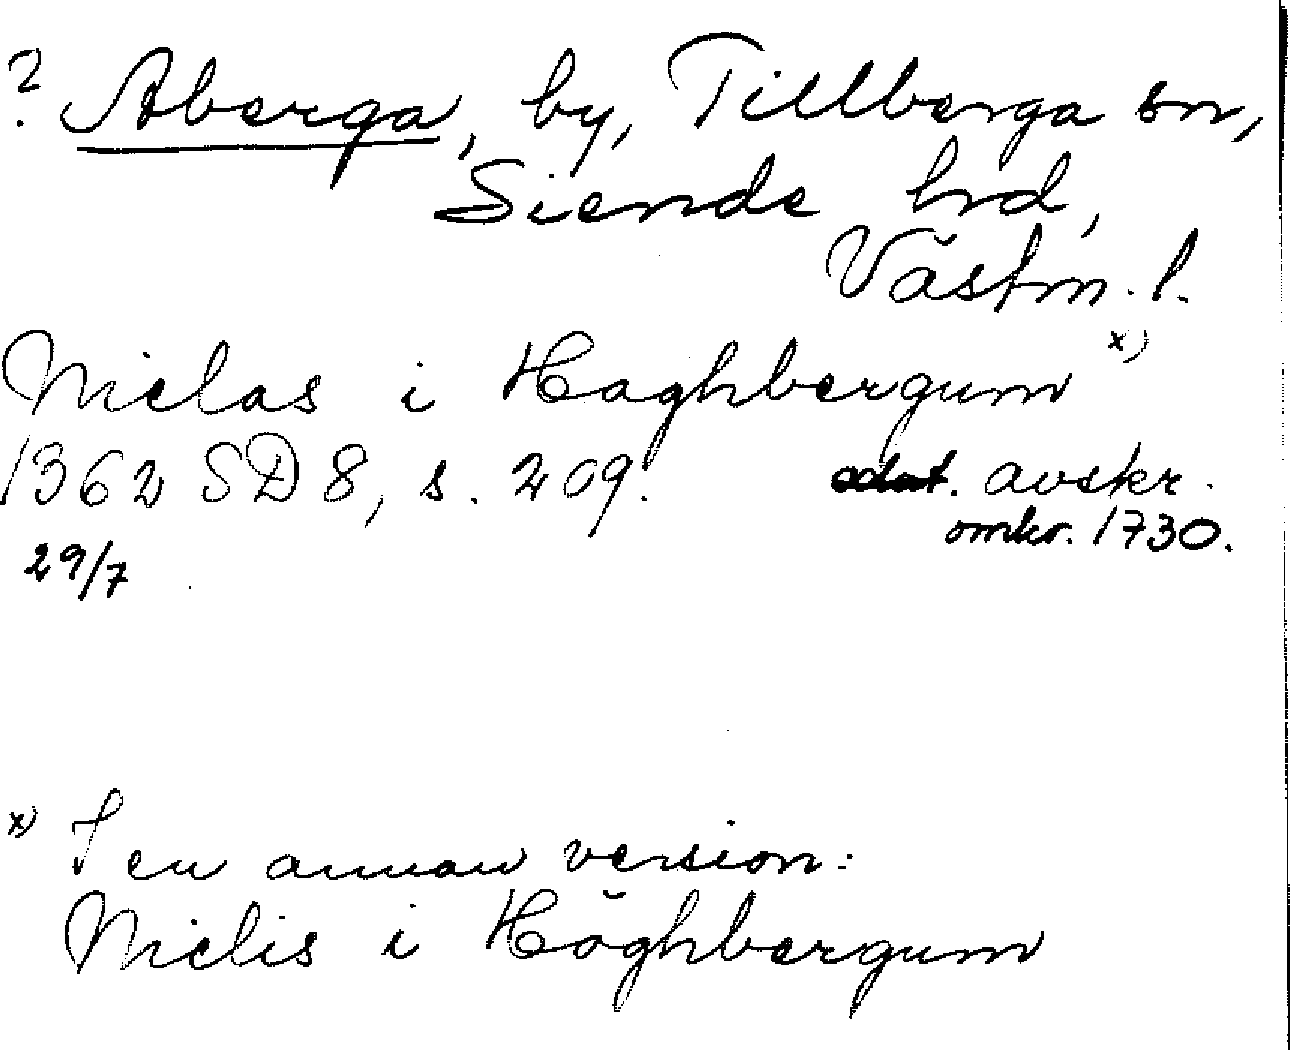 ? Aberga, by, Tillberga sn,
Siende hrd,
Västm. l.
Niclas i Haghbergum x)
1362 SD 8, s. 209. odat. avskr.
omkr. 1730.
29/7
x) I en annan version:
Niclis i Höghbergum